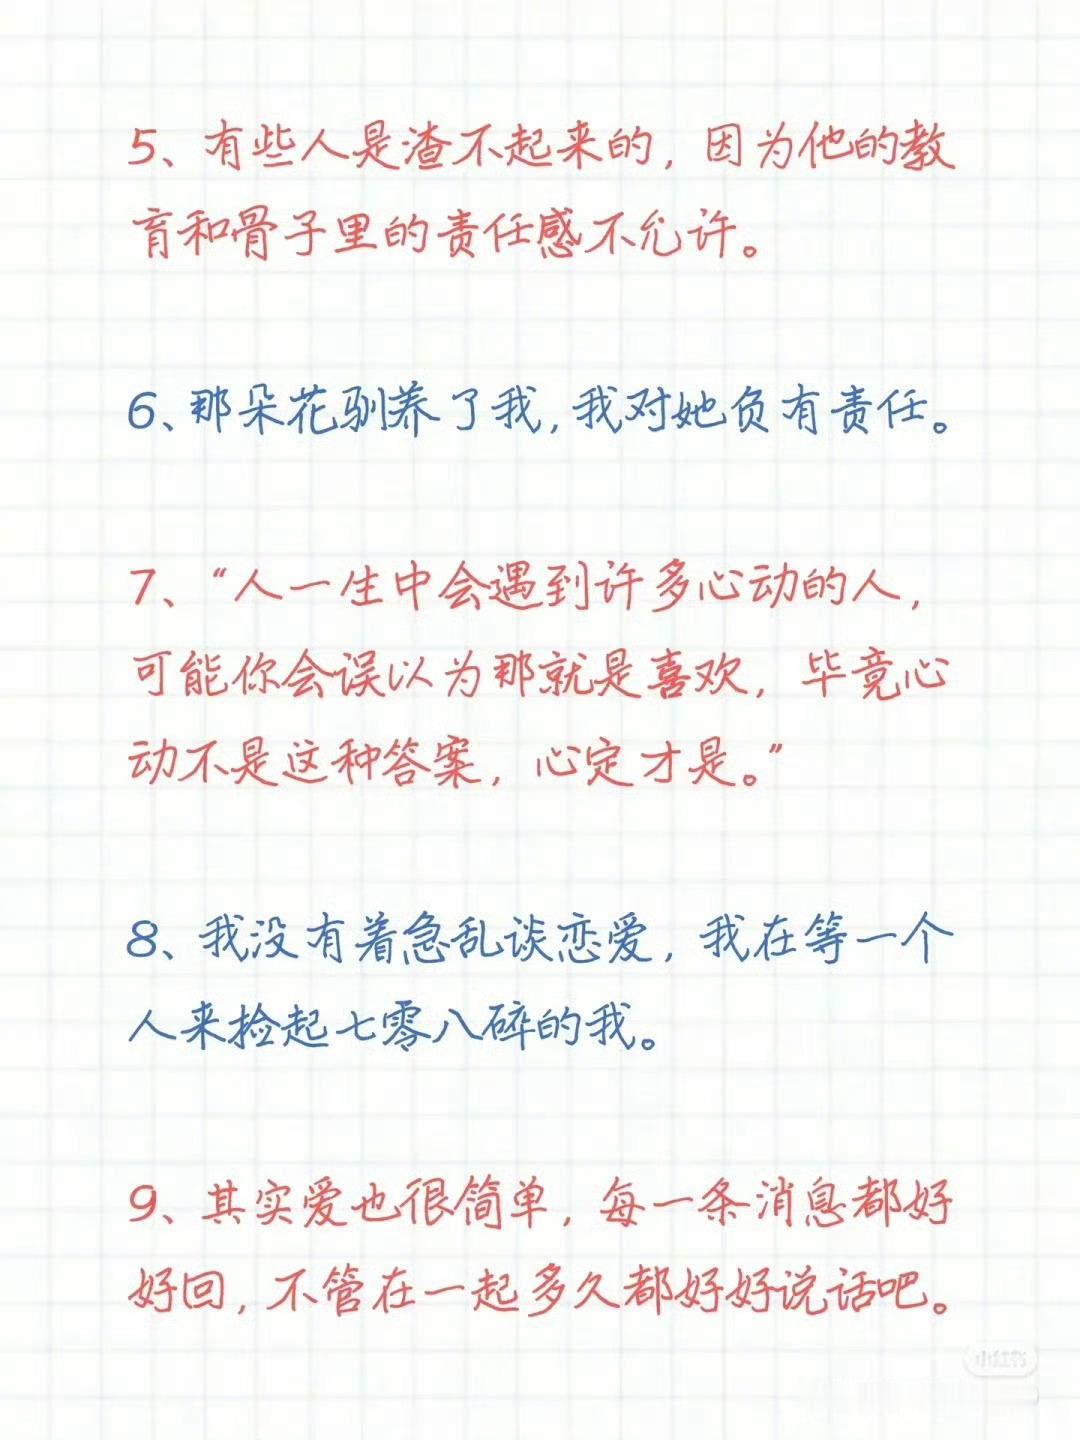 5、有些人是渣不起来的，因为他的教
育和骨子里的责任感不允许。
6、那朵花驯养了我，我对她负有责任。
7、“人一生中会遇到许多心动的人，
可能你会误以为那就是喜欢，毕竟心
动不是这种答案，心定才是。”
8、我没有着急乱谈恋爱，我在等一个
人来捡起七零八碎的我。
9、其实爱也很简单，每一条消息都好
好回，不管在一起多久都好好说话吧。
小红书